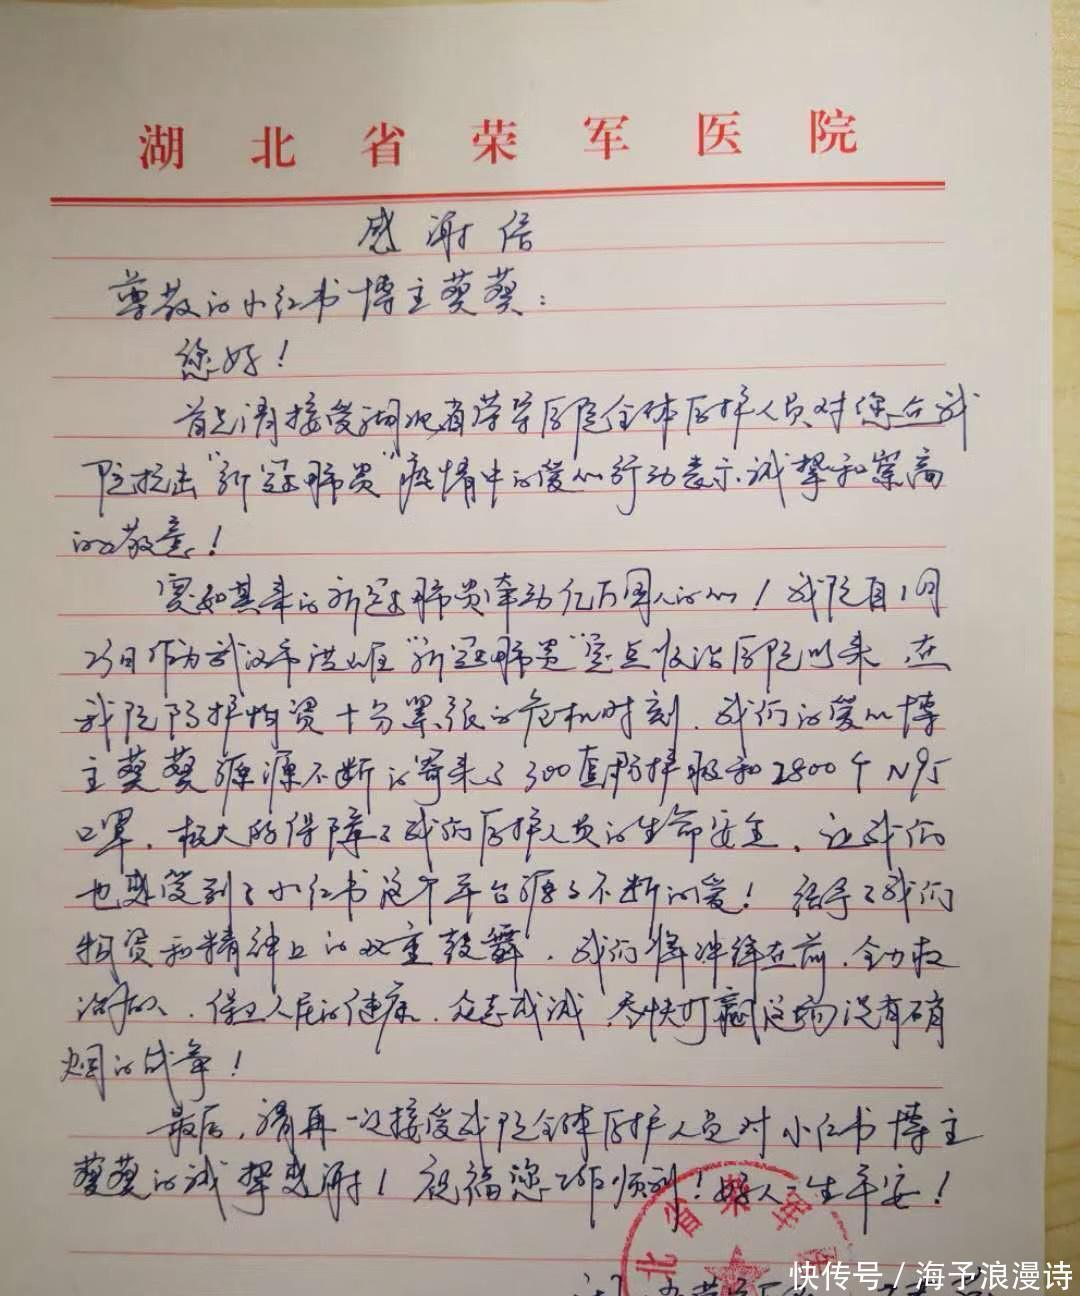 湖北省荣军医院
感谢信
尊敬的小红书博主葵葵：
您好！
首先请接受湖北省荣军医院全体医护人员对您在我
院抗击“新冠肺炎”疫情中的爱心行动表示诚挚和崇高
的敬意！
突如其来的新冠肺炎牵动亿万国人的心！我院自1月
23日作为武汉市洪山区“新冠肺炎”定点收治医院以来，在
我院防护物资十分紧张的危机时刻，我们的爱心博
主葵葵源源不断的寄来了300套防护服和2800个N95
口罩，极大的保障了我们医护人员的生命安全，让我们
也感受到了小红书这个平台源源不断的爱！给予了我们
物资和精神上的双重鼓舞，我们将冲锋在前，全力救
治病人，保卫人民的健康，众志成诚，尽快打赢这场没有硝
烟的战争！
最后，请再一次接受我院全体医护人员对小红书博主
葵葵的诚挚感谢！祝福您工作顺利！好人一生平安！
北省荣军医
快传号／海予浪漫诗